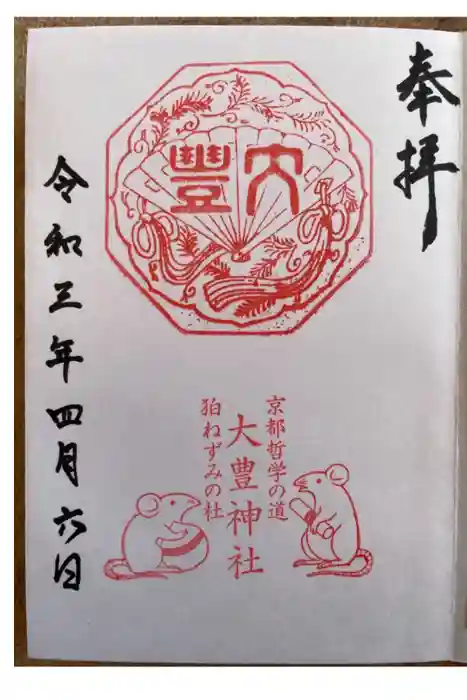 奉拝
大豐
京都哲学の道
大豊神社
狛ねずみの社
令和三年四月六日